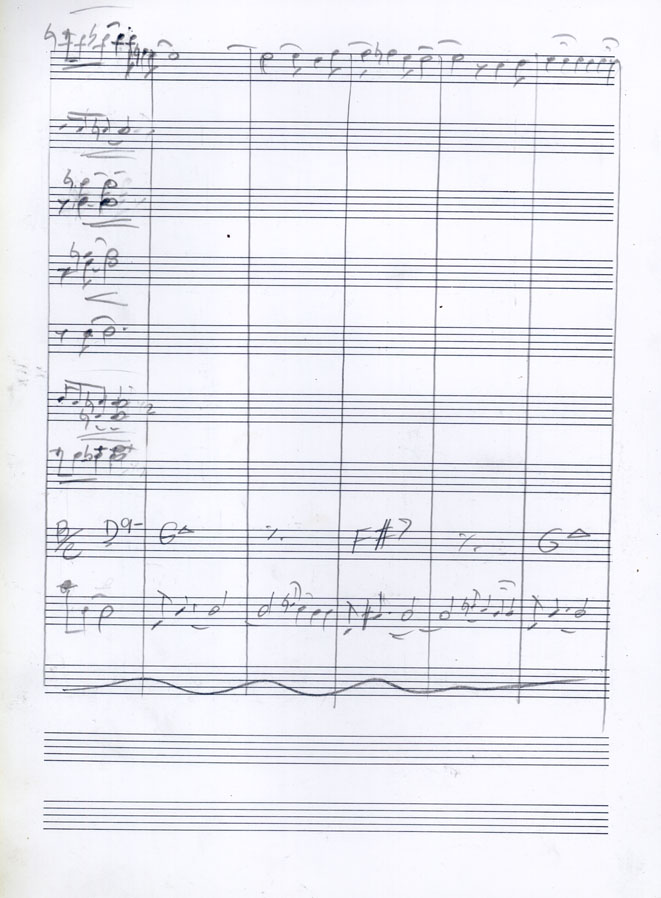 B/C D9- G△ ٪ F#7 ٪ G△